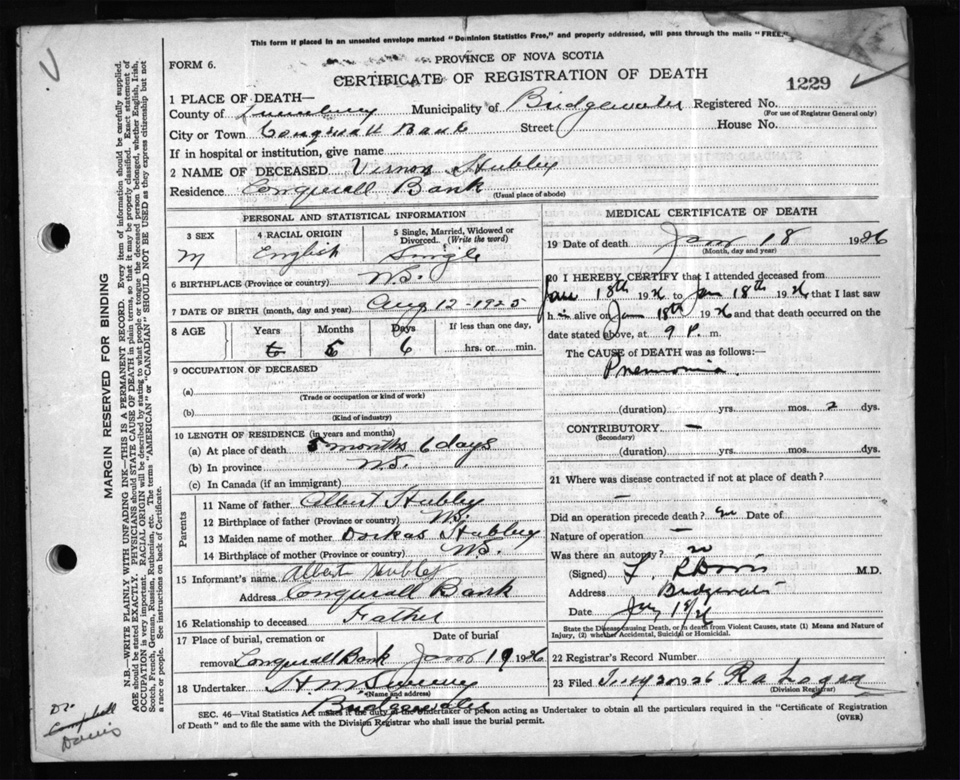 This form if placed in an unsealed envelope marked "Dominion Statistics Free," and properly addressed, will pass through the mails "FREE."
FORM 6.
PROVINCE OF NOVA SCOTIA
CERTIFICATE OF REGISTRATION OF DEATH
1229
1 PLACE OF DEATH—
County of Lunenburg Municipality of Bridgewater Registered No.
(For use of Registrar General only)
City or Town Conquerall Bank Street House No.
If in hospital or institution, give name
2 NAME OF DECEASED Vernon Hubley
Residence Conquerall Bank
(Usual place of abode)
PERSONAL AND STATISTICAL INFORMATION
3 SEX 4 RACIAL ORIGIN 5 Single, Married, Widowed or Divorced. (Write the word)
M English Single
6 BIRTHPLACE (Province or country) N.S.
7 DATE OF BIRTH (month, day and year) Aug 12 - 1925
8 AGE Years Months Days If less than one day,
5 6 hrs. or min.
9 OCCUPATION OF DECEASED
(a)
(Trade or occupation or kind of work)
(b)
(Kind of industry)
10 LENGTH OF RESIDENCE (in years and months)
(a) At place of death 5 months 6 days
(b) In province N.S.
(c) In Canada (if an immigrant)
Parents
11 Name of father Albert Hubley
12 Birthplace of father (Province or country) N.S.
13 Maiden name of mother Dorkas Hubley
14 Birthplace of mother (Province or country) N.S.
15 Informant's name Albert Hubley
Address Conquerall Bank
16 Relationship to deceased Father
17 Place of burial, cremation or Date of burial
removal Conquerall Bank Jan 19 1926
18 Undertaker
(Name and address)
Bridgewater
MEDICAL CERTIFICATE OF DEATH
19 Date of death Jan 18 1926
(Month, day and year)
20 I HEREBY CERTIFY that I attended deceased from
Jan 18th 1926 to Jan 18th 1926 that I last saw
h im alive on Jan 18th 1926 and that death occurred on the
date stated above, at 9 P. m.
The CAUSE of DEATH was as follows:—
Pneumonia.
(duration) yrs. mos. 2 dys.
CONTRIBUTORY —
(Secondary)
(duration) yrs. mos. dys.
21 Where was disease contracted if not at place of death?
—
Did an operation precede death? no Date of
Nature of operation —
Was there an autopsy? no
(Signed) Davis M.D.
Address Bridgewater
Date Jan 18/26
State the Disease causing Death, or in death from Violent Causes, state (1) Means and Nature of
Injury, (2) whether Accidental, Suicidal or Homicidal.
22 Registrar's Record Number
23 Filed
(Division Registrar)
SEC. 46—Vital Statistics Act makes it the duty of the Undertaker or person acting as Undertaker to obtain all the particulars required in the "Certificate of Registration
of Death" and to file the same with the Division Registrar who shall issue the burial permit.
(OVER)
MARGIN RESERVED FOR BINDING
N.B.—WRITE PLAINLY WITH UNFADING INK—THIS IS A PERMANENT RECORD. Every item of information should be carefully supplied.
AGE should be stated EXACTLY. PHYSICIANS should STATE CAUSE OF DEATH in plain terms, so that it may be properly classified. Exact statement of
OCCUPATION is very important. RACIAL ORIGIN will be described by stating to what people or tongue the deceased person belonged, whether English, Irish,
Scotch, French, German, Russian, Ruthenian, etc. The terms "AMERICAN" or "CANADIAN" SHOULD NOT BE USED as they express citizenship but not
a race or people. See instructions on back of Certificate.
Dr.
Campbell
Davis